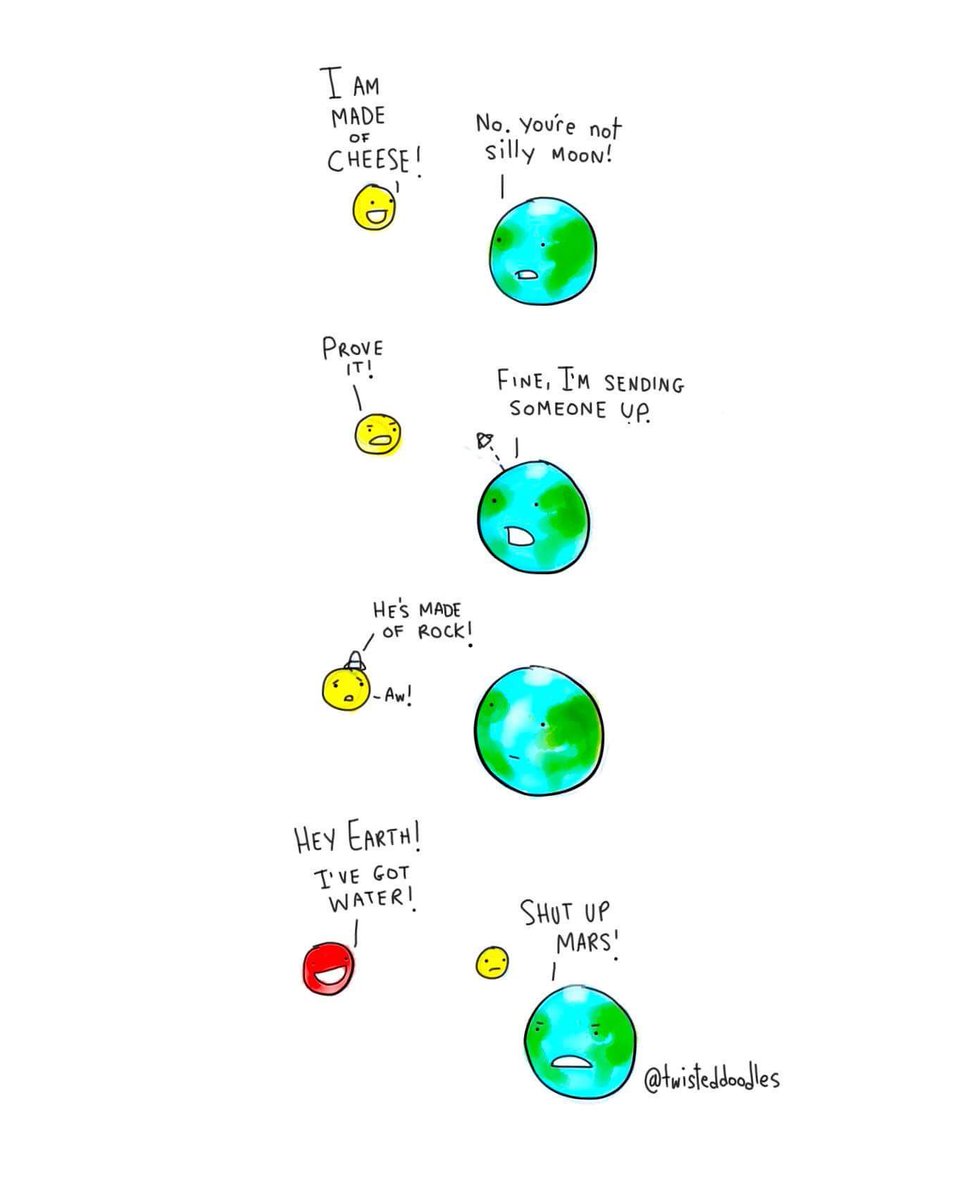 I AM
MADE
OF
CHEESE!
No. You're not
silly MOON!
PROVE
IT!
FINE, I'M SENDING
SOMEONE UP.
HE'S MADE
OF ROCK!
AW!
HEY EARTH!
I'VE GOT
WATER!
SHUT UP
MARS!
@twisteddoodles